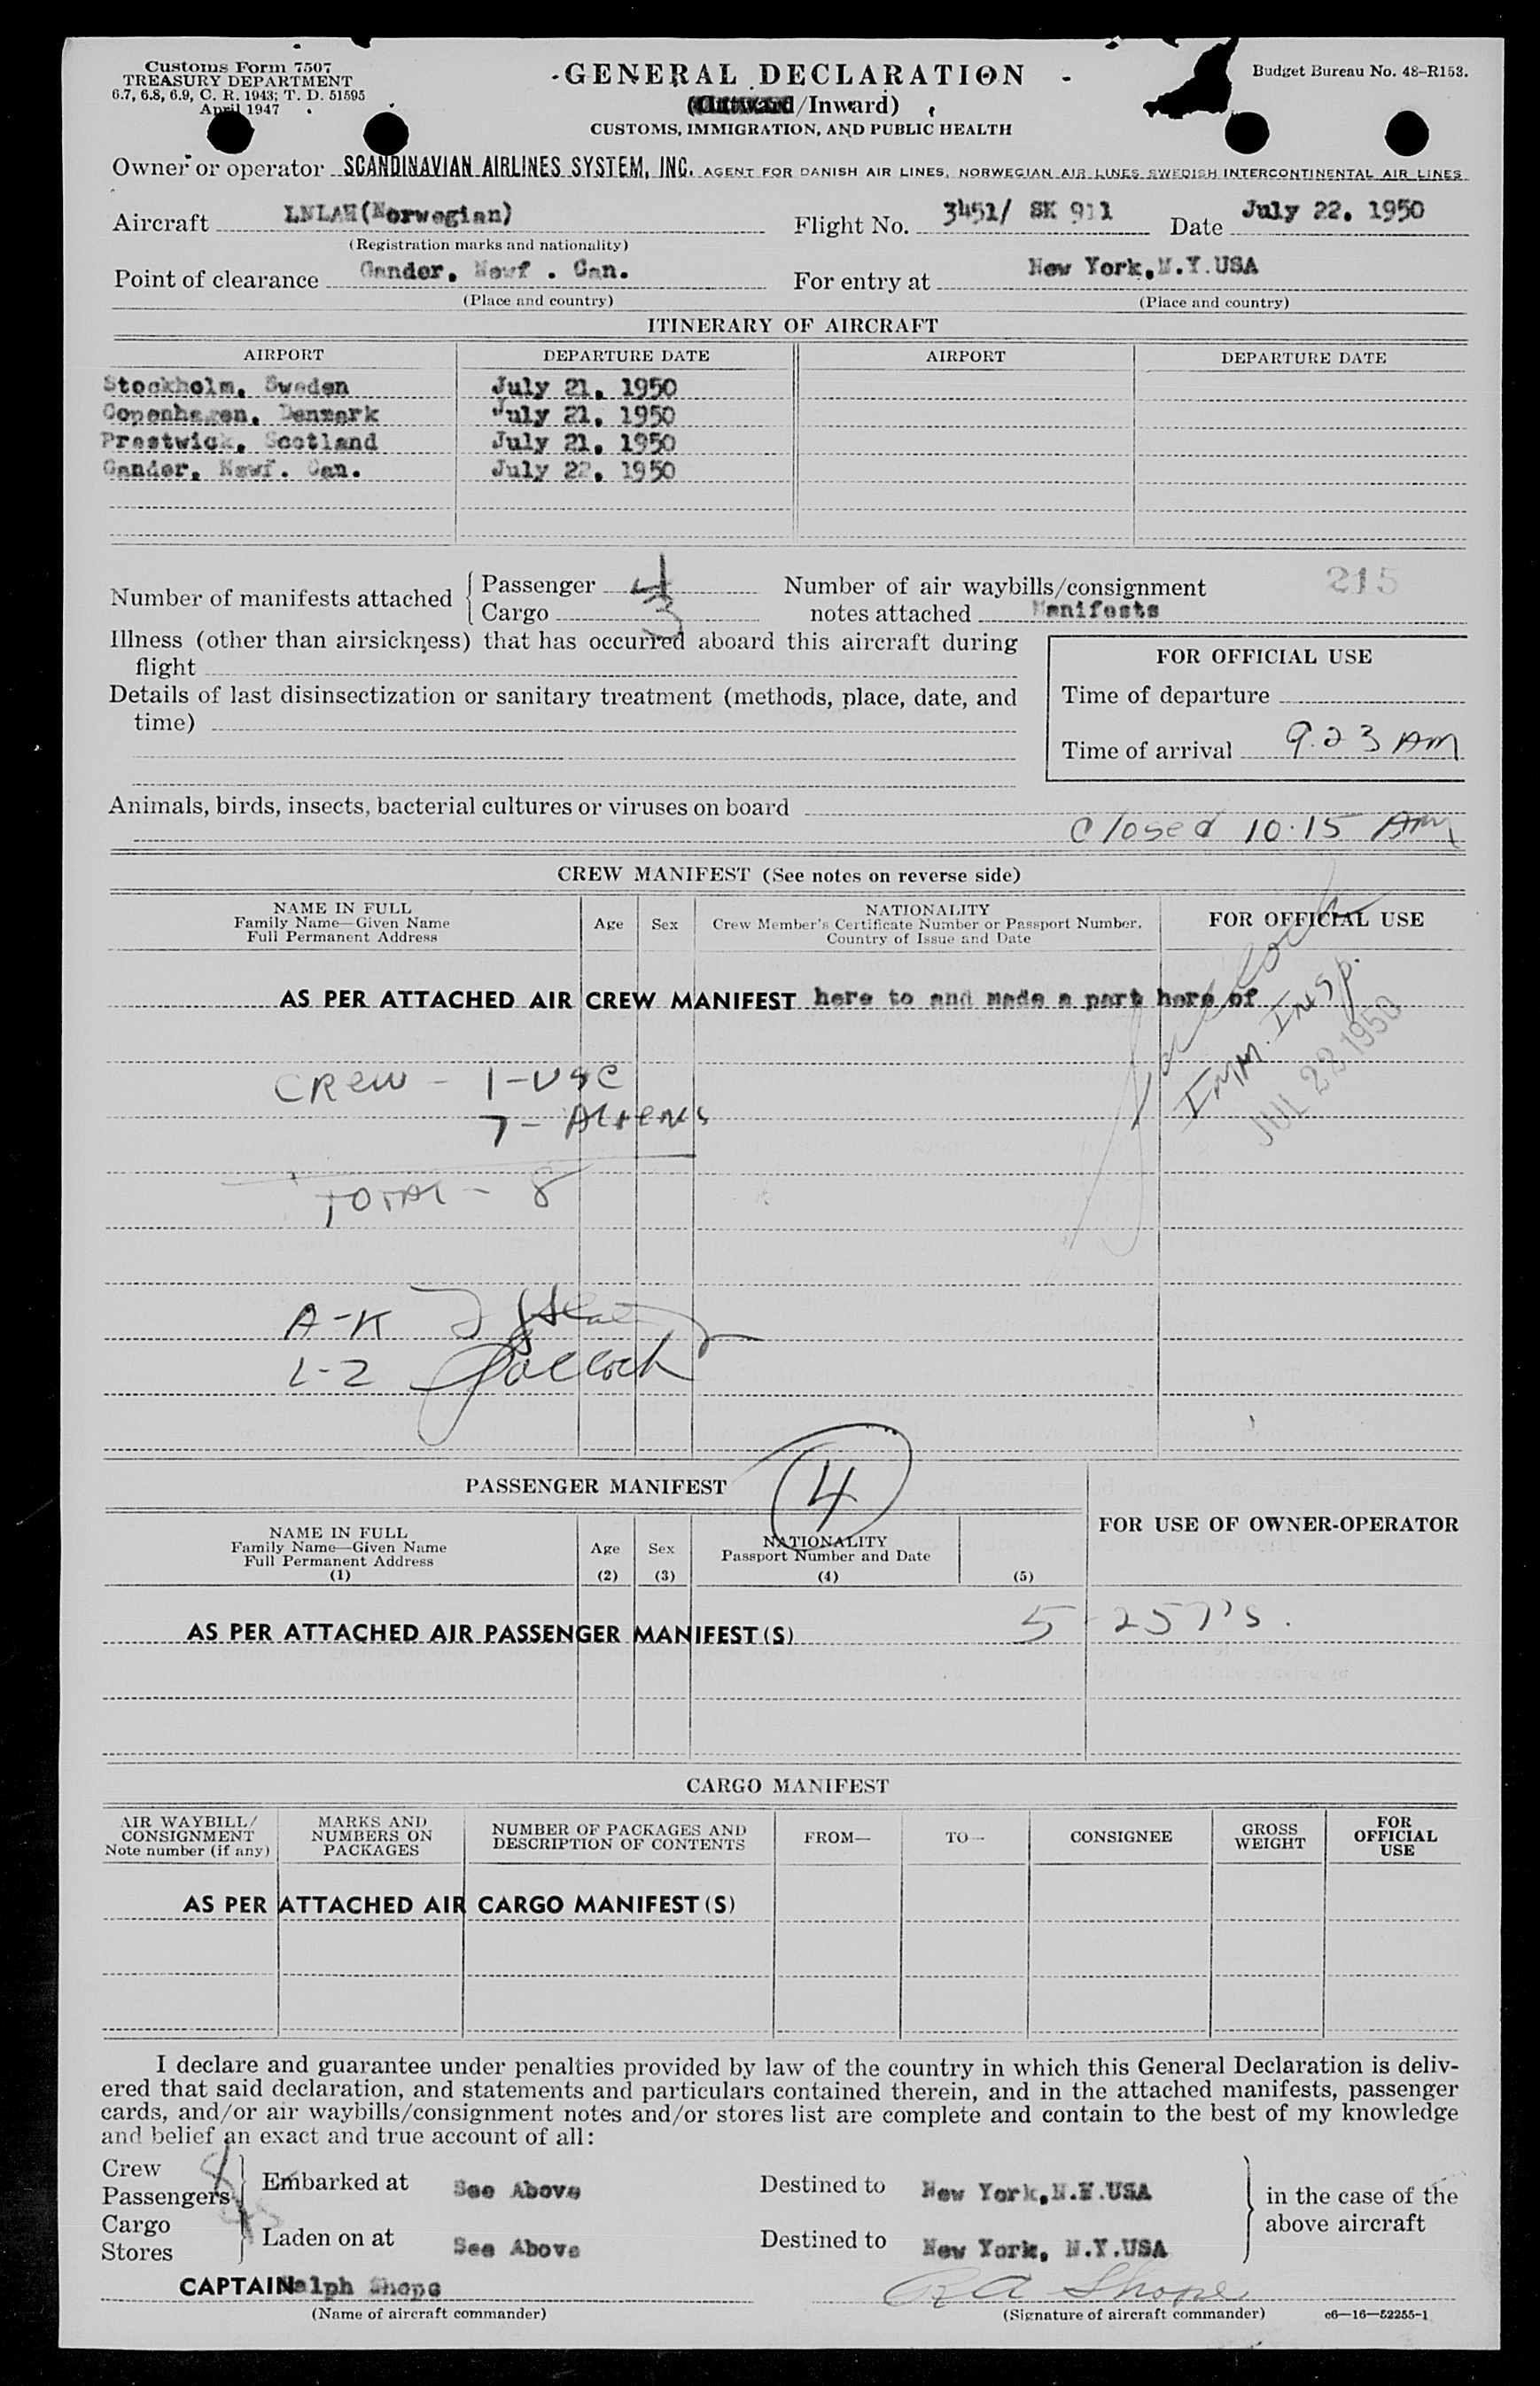 Customs Form 7507
TREASURY DEPARTMENT
6.7, 6.8, 6.9, C. R. 1943; T. D. 51595
April 1947
GENERAL DECLARATION
(Outward/Inward)
CUSTOMS, IMMIGRATION, AND PUBLIC HEALTH
Budget Bureau No. 48–R153.
Owner or operator SCANDINAVIAN AIRLINES SYSTEM, INC. AGENT FOR DANISH AIR LINES, NORWEGIAN AIR LINES SWEDISH INTERCONTINENTAL AIR LINES
Aircraft LNLAH(Norwegian) Flight No. 3451/ SK 911 Date July 22, 1950
(Registration marks and nationality)
Point of clearance Gander, Newf . Can. For entry at New York,N.Y.USA
(Place and country) (Place and country)
ITINERARY OF AIRCRAFT
AIRPORT DEPARTURE DATE AIRPORT DEPARTURE DATE
Stockholm, Sweden July 21, 1950
Copenhagen, Denmark July 21, 1950
Prestwick, Scotland July 21, 1950
Gander, Newf. Can. July 22, 1950
Number of manifests attached
Passenger 4
Cargo 3
Number of air waybills/consignment 215
notes attached Manifests
Illness (other than airsickness) that has occurred aboard this aircraft during
flight
Details of last disinsectization or sanitary treatment (methods, place, date, and
time)
FOR OFFICIAL USE
Time of departure
Time of arrival 9.23 AM
Animals, birds, insects, bacterial cultures or viruses on board
Closed 10:15 AM
CREW MANIFEST (See notes on reverse side)
NAME IN FULL
Family Name—Given Name
Full Permanent Address
Age
Sex
NATIONALITY
Crew Member's Certificate Number or Passport Number,
Country of Issue and Date
FOR OFFICIAL USE
AS PER ATTACHED AIR CREW MANIFEST here to and made a part here of
Imm. Insp.
JUL 22 1950
CREW - 1-USC
7- Aliens
TOTAL - 8
A-K
L-Z
PASSENGER MANIFEST
4
NAME IN FULL
Family Name—Given Name
Full Permanent Address
(1)
Age
(2)
Sex
(3)
NATIONALITY
Passport Number and Date
(4)
(5)
FOR USE OF OWNER-OPERATOR
AS PER ATTACHED AIR PASSENGER MANIFEST(S) 5 - 257's.
CARGO MANIFEST
AIR WAYBILL/
CONSIGNMENT
Note number (if any)
MARKS AND
NUMBERS ON
PACKAGES
NUMBER OF PACKAGES AND
DESCRIPTION OF CONTENTS
FROM—
TO—
CONSIGNEE
GROSS
WEIGHT
FOR
OFFICIAL
USE
AS PER ATTACHED AIR CARGO MANIFEST(S)
I declare and guarantee under penalties provided by law of the country in which this General Declaration is deliv-
ered that said declaration, and statements and particulars contained therein, and in the attached manifests, passenger
cards, and/or air waybills/consignment notes and/or stores list are complete and contain to the best of my knowledge
and belief an exact and true account of all:
Crew 8
Passengers
Cargo
Stores
Embarked at See Above Destined to New York,N.Y.USA
Laden on at See Above Destined to New York, N.Y.USA
in the case of the
above aircraft
CAPTAIN Ralph Shope RA Shope
(Name of aircraft commander) (Signature of aircraft commander) c6—16—52255-1